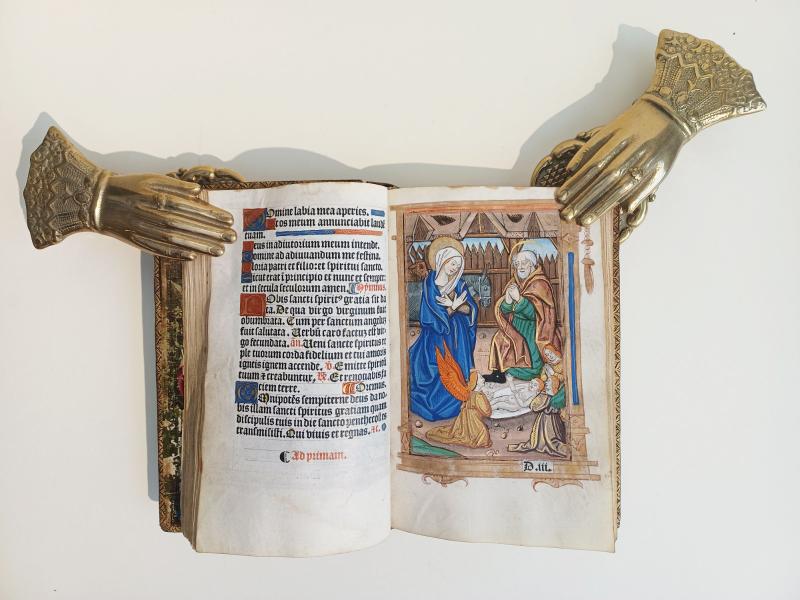 Domine labia mea aperies.
Et os meum annunciabit laudē
tuam.
Deus in adiutorium meum intende.
Domine ad adiuuandum me festina.
Gloria patri et filio: et spiritui sancto.
Sicut erat ī principio et nunc et semper:
et in secula seculorum amen. Hymnus.
Nobis sancti spiritꝰ gratia sit da
ta. De qua virgo virginum fuit
obumbrata. Cum per sanctum angelū
fuit salutata. Verbū caro factuz est vir
go fecundata. añ. Veni sancte spiritus re
ple tuorum corda fidelium et tui amoris
ignis ignem accende. v. Emitte spiritū
tuum ⁊ creabuntur. R. Et renouabis fa
ciem terre. Oremus.
Omnipotēs sempiterne deus da no-
bis illam sancti spiritus gratiam quam
discipulis tuis in die sancto penthecostes
transmisisti. Qui viuis et regnas. Ac.
Ad primam.
D.iii.